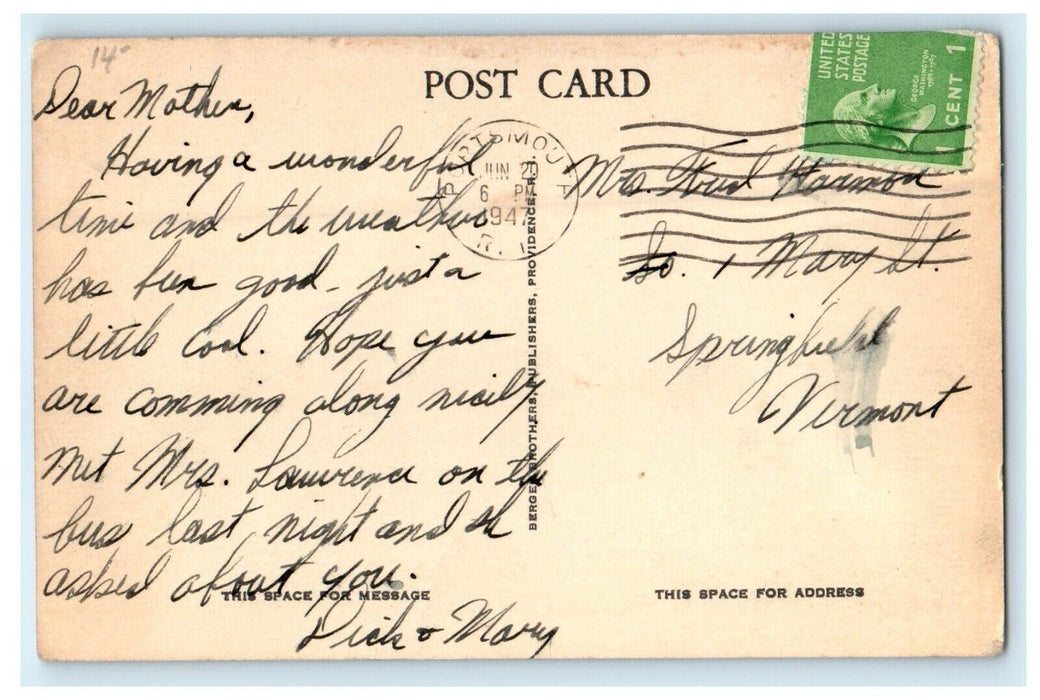 14-
POST CARD
UNITED
STATES
POSTAGE
GEORGE
WASHINGTON
1789-1797
1 CENT 1
PORTSMOUTH
JUN 20
6 PM
1947
R. I.
Dear Mother,
Having a wonderful
time and the weather
has been good - just a
little cool. Hope you
are comming along nicily
Met Mrs. Lawrence on the
bus last night and she
asked about you.
Dick & Mary
THIS SPACE FOR MESSAGE
BERGER BROTHERS, PUBLISHERS, PROVIDENCE, R. I.
Mrs. Fred Harmon
So. Mary St.
Springfield
Vermont
THIS SPACE FOR ADDRESS